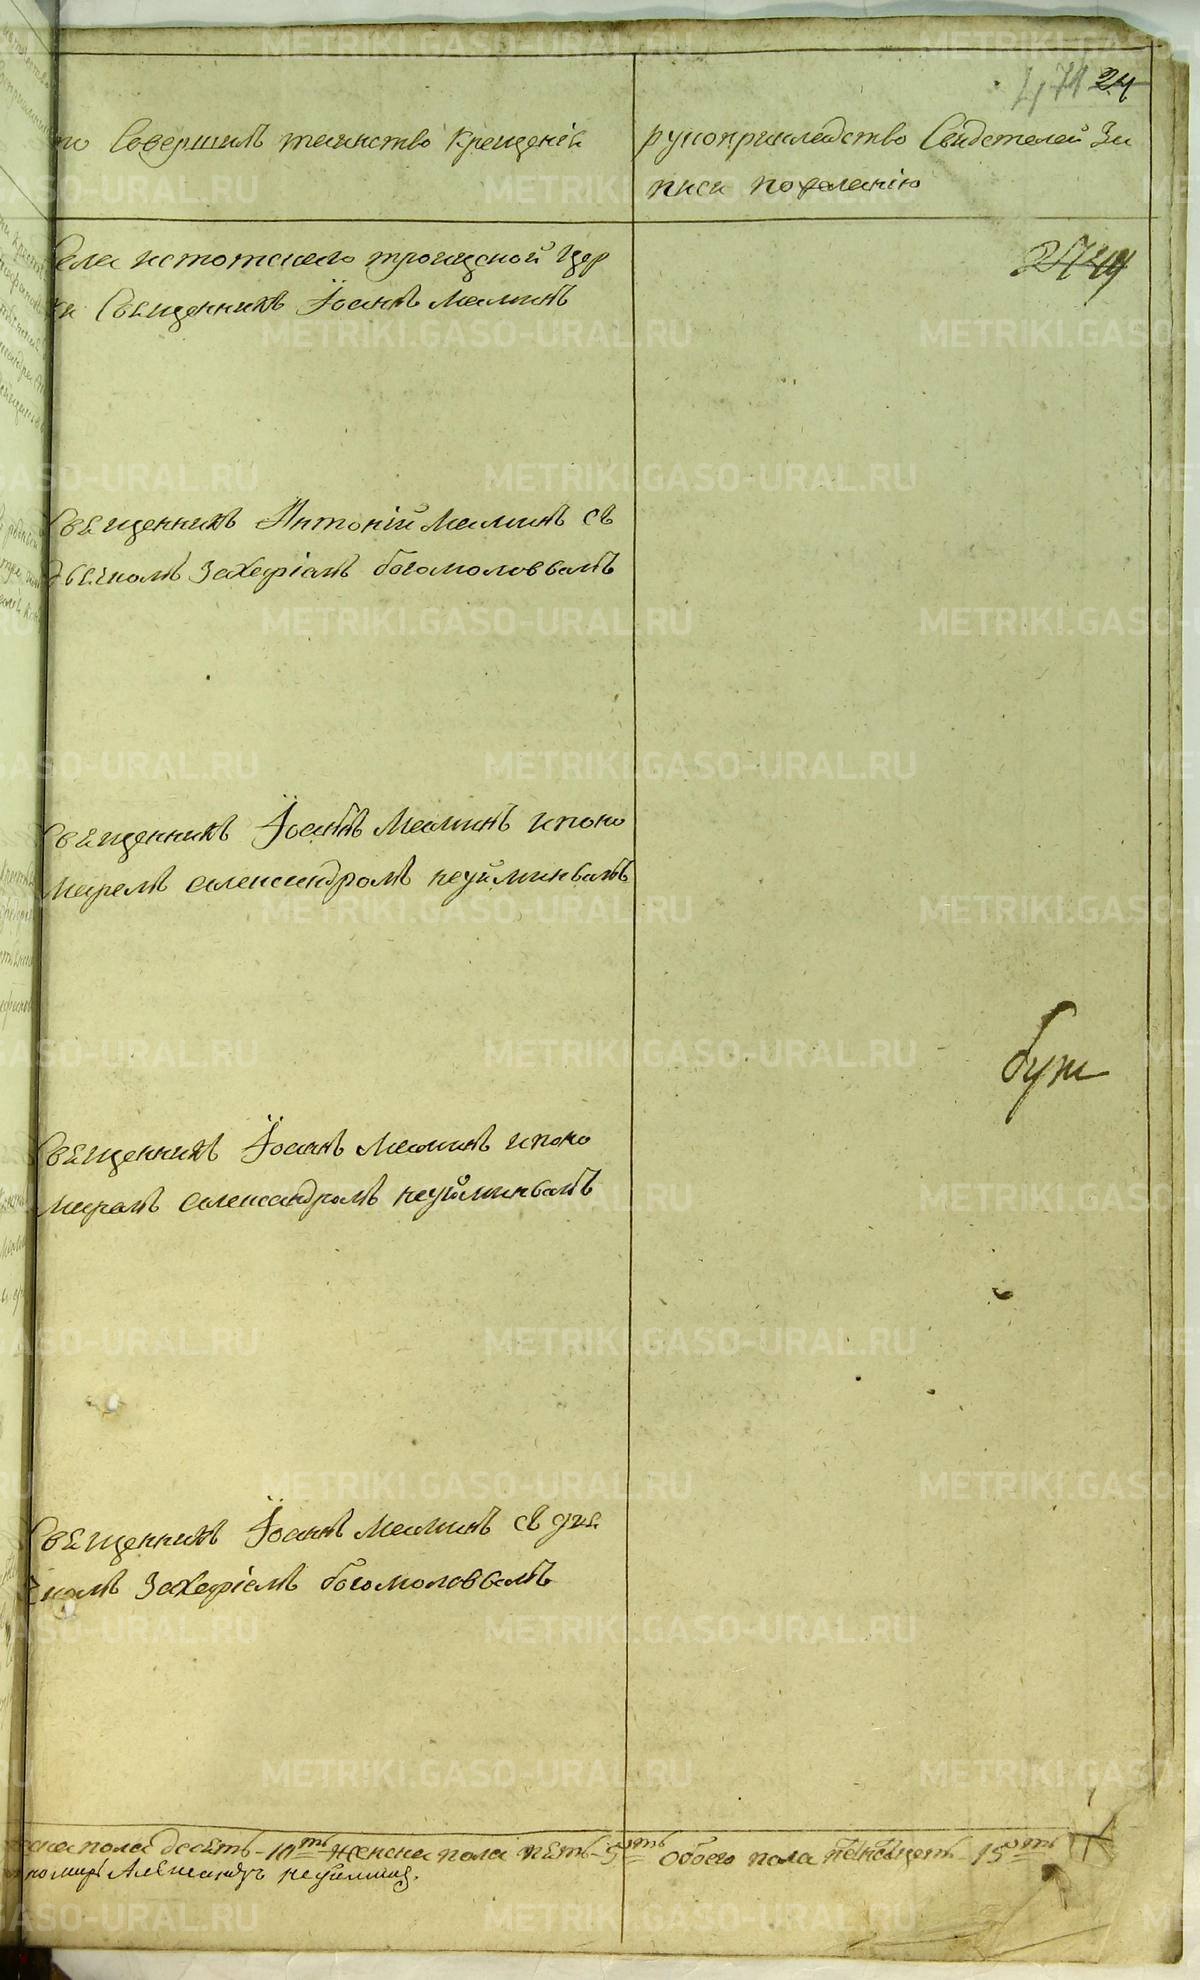 471 24
то Совершилъ таинство Крещенія
рукоприкладство Свидетелей За
писи по желанію
Села истотскаго троицкой цер
кви Священникъ Іоаннъ Маминъ
Священникъ Антоній Маминъ съ
дьячкомъ Захаріамъ богомоловвамъ
Священникъ Іоаннъ Маминъ ипоно
маремъ александромъ неуйминвамъ
буж
Священникъ Іоаннъ Маминъ ипоно
марамъ александромъ неуйминвамъ
Священникъ Іоаннъ Маминъ съ дья
чкомъ Захаріамъ богомоловвамъ
пола десять - 10ть женска пола пять - 5ть обоего пола пятнацеть 15ть
пономарь Александръ неуйминъ.
METRIKI.GASO-URAL.RU